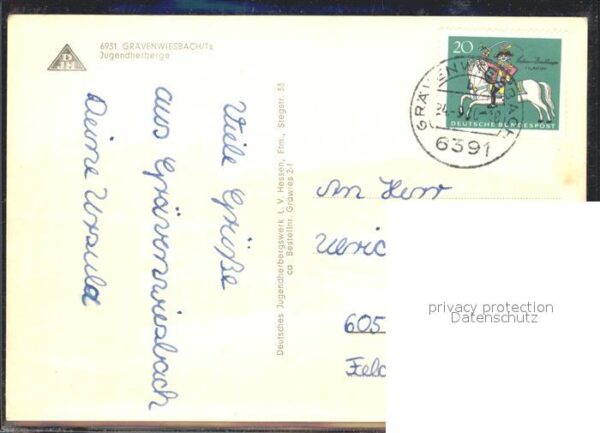 6931 GRÄVENWIESBACH/Ts
Jugendherberge
DJH
Viele Grüße
aus Grävenwiesbach
Deine Ursula
Deutsches Jugendherbergswerk L. V. Hessen, Ffm., Stegstr. 33
ca Bestellnr. Gräwies 2-1
20
DEUTSCHE BUNDESPOST
GRÄVENWIESBACH
6391
An Herr
Ulric
605
Fel
privacy protection
Datenschutz